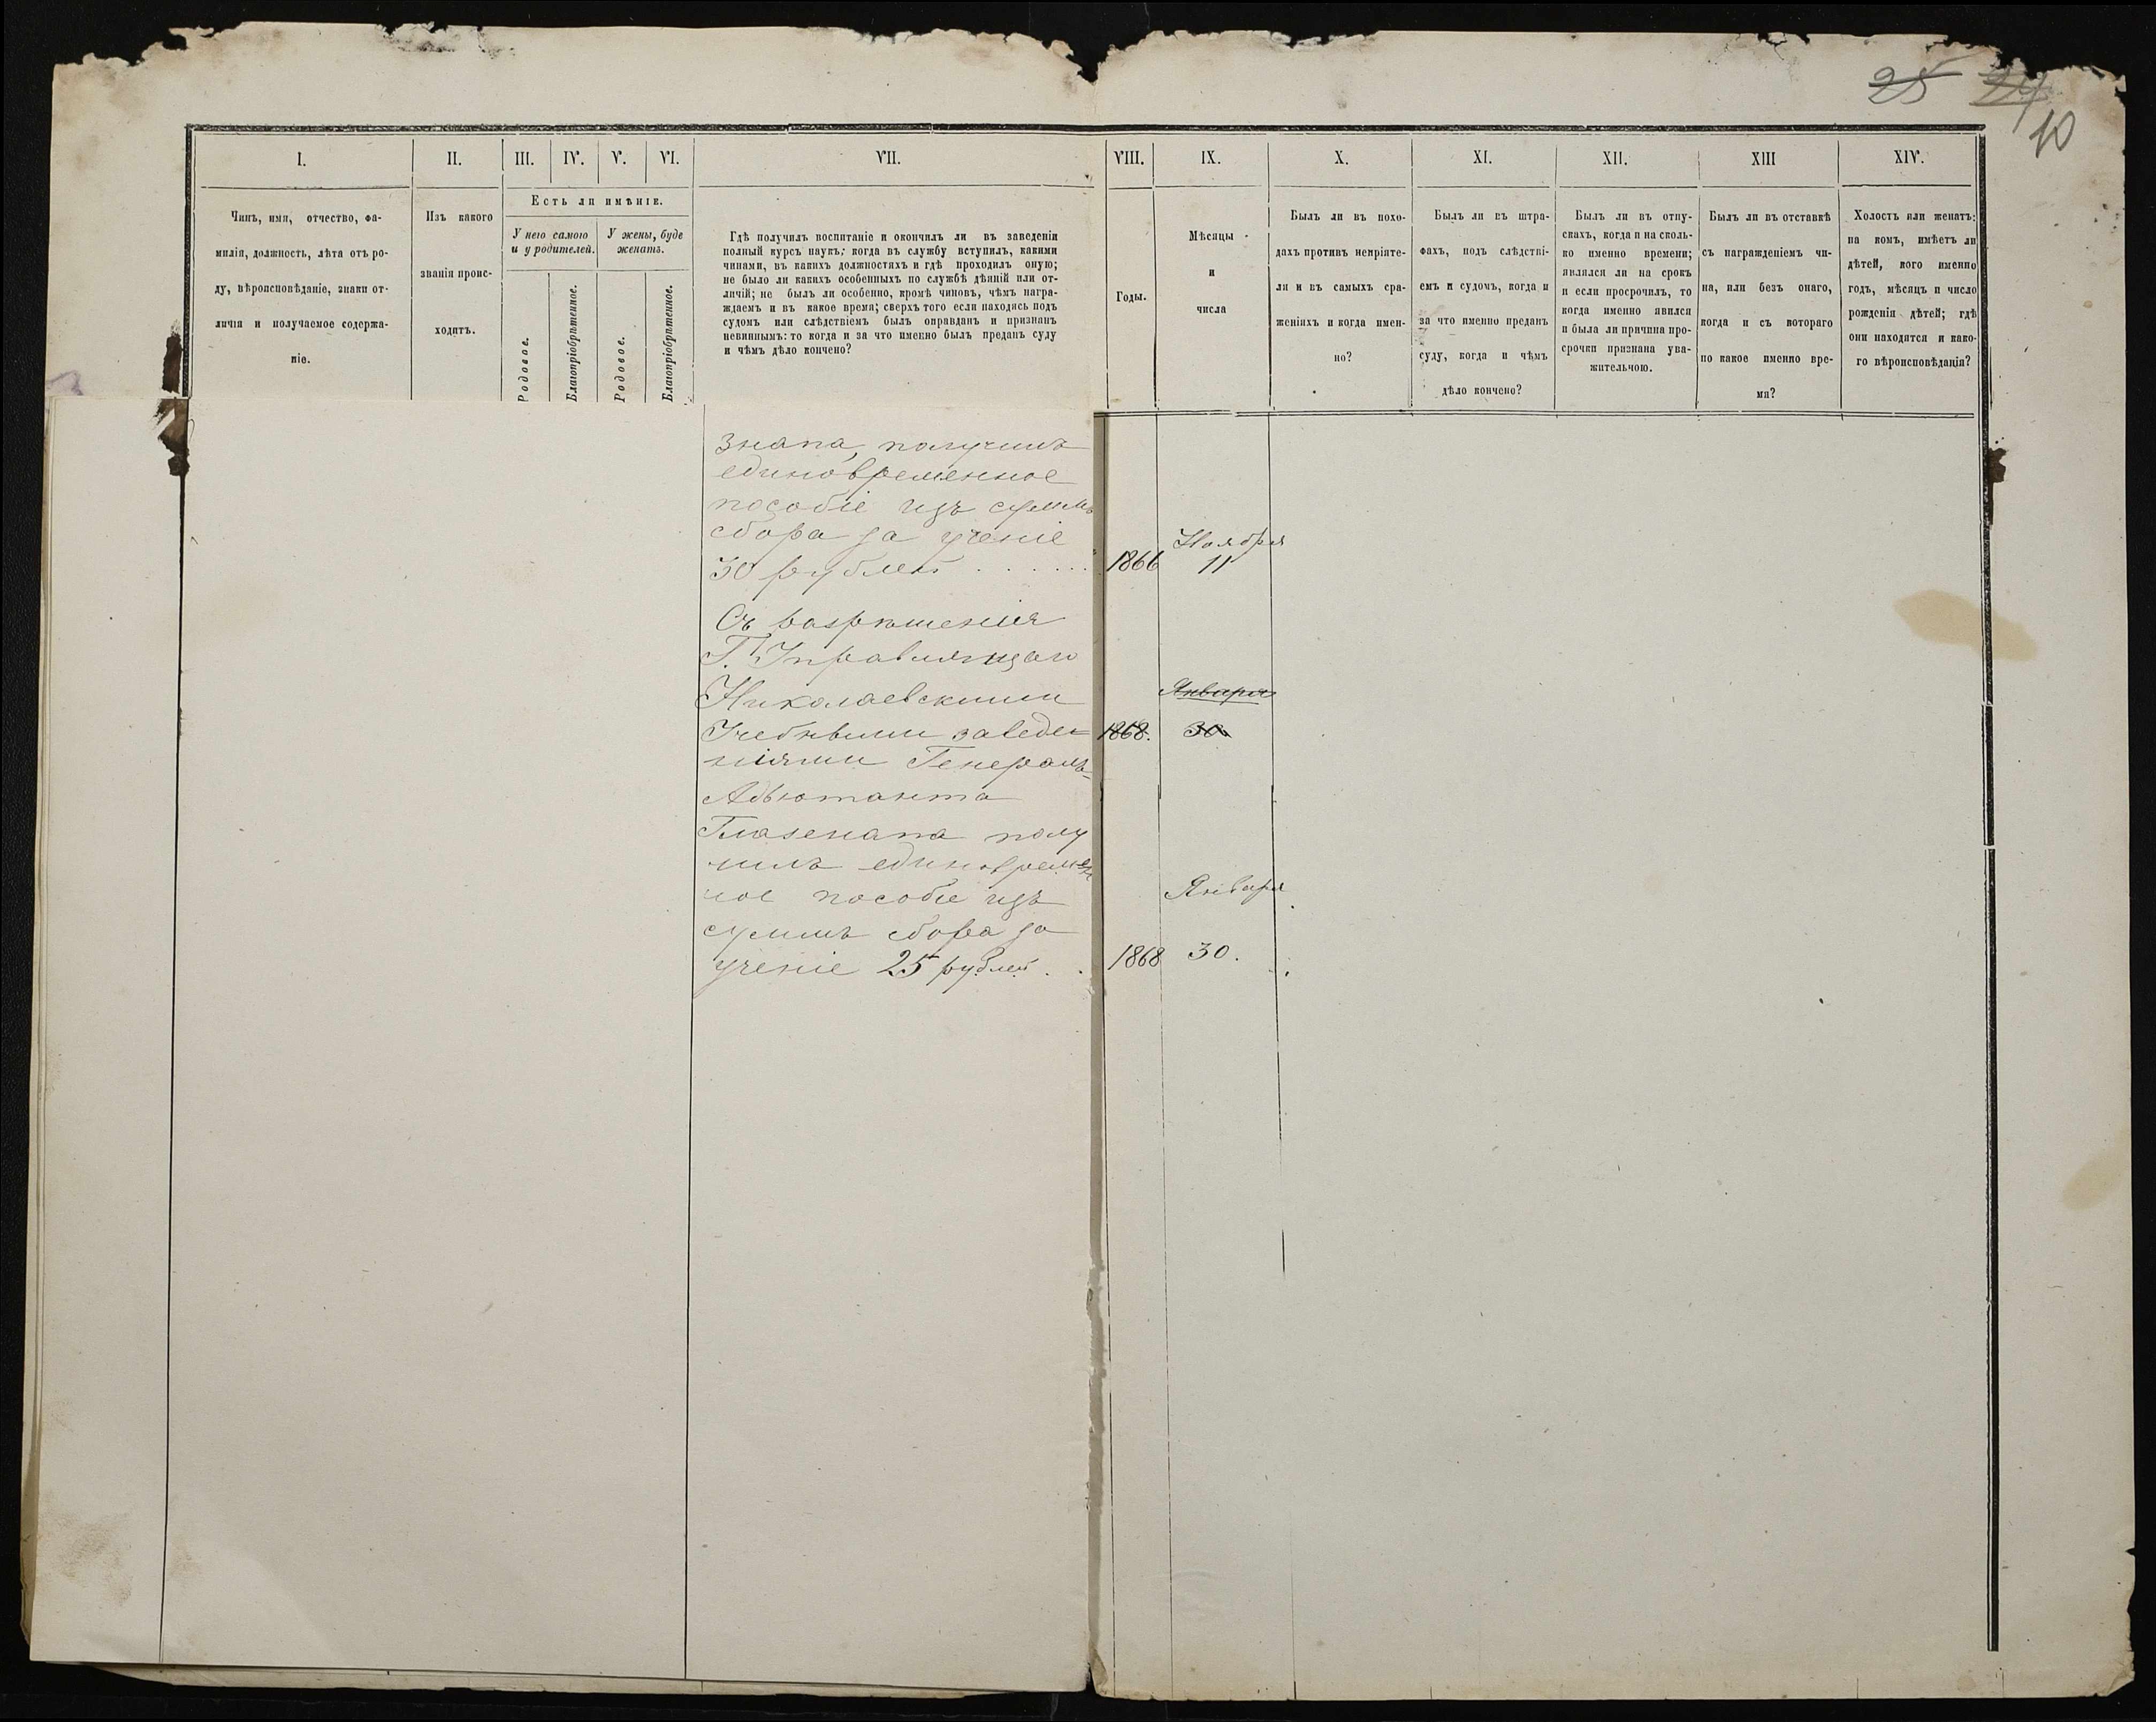 25 24
10
I.
Чинъ, имя, отчество, фа-
милія, должность, лѣта отъ ро-
ду, вѣроисповѣданіе, знаки от-
личія и получаемое содержа-
ніе.
II.
Изъ какого
званія проис-
ходитъ.
III. IV. V. VI.
Есть ли имѣніе.
У него самого
и у родителей.
У жены, буде
женатъ.
Родовое.
Благопріобрѣтенное.
Родовое.
Благопріобрѣтенное.
VII.
Гдѣ получилъ воспитаніе и окончилъ ли въ заведеніи
полный курсъ наукъ; когда въ службу вступилъ, какими
чинами, въ какихъ должностяхъ и гдѣ проходилъ оную;
не было ли какихъ особенныхъ по службѣ дѣяній или от-
личій; не былъ ли особенно, кромѣ чиновъ, чѣмъ награ-
ждаемъ и въ какое время; сверхъ того если находясь подъ
судомъ или слѣдствіемъ былъ оправданъ и признанъ
невиннымъ: то когда и за что именно былъ преданъ суду
и чѣмъ дѣло кончено?
VIII.
Годы.
IX.
Мѣсяцы
и
числа
X.
Былъ ли въ похо-
дахъ противъ непріяте-
ля и въ самыхъ сра-
женіяхъ и когда имен-
но?
XI.
Былъ ли въ штра-
фахъ, подъ слѣдстві-
емъ и судомъ, когда и
за что именно преданъ
суду, когда и чѣмъ
дѣло кончено?
XII.
Былъ ли въ отпу-
скахъ, когда и на сколь-
ко именно времени;
являлся ли на срокъ
и если просрочилъ, то
когда именно явился
и была ли причина про-
срочки признана ува-
жительною.
XIII
Былъ ли въ отставкѣ
съ награжденіемъ чи-
на, или безъ онаго,
когда и съ котораго
по какое именно вре-
мя?
XIV.
Холостъ или женатъ;
на комъ, имѣетъ ли
дѣтей, кого именно
годъ, мѣсяцъ и число
рожденія дѣтей; гдѣ
они находятся и како-
го вѣроисповѣданія?
знапа, получилъ
единовременное
пособіе изъ суммъ
сбора за ученіе
30 рублей . . . . . .
1866 Ноября 11
Съ разрѣшенія
Г. Управляющаго
Николаевскими
Учебными заведе-
ніями Генералъ-
Адъютанта
Глазенапа полу
чилъ единовремен
ное пособіе изъ
суммъ сбора за
ученіе 25 рублей . .
Января
1868. 30
Января
1868 30.